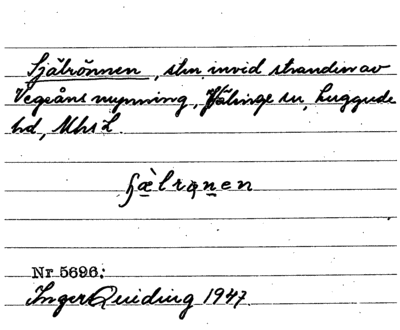 Själrönnen, sten invid stranden av
Vegeåns mynning, Välinge sn, Luggude
hd, Mhs L.
ʃæ̀lrønen
Nr 5696.
Inger Quiding 1947.